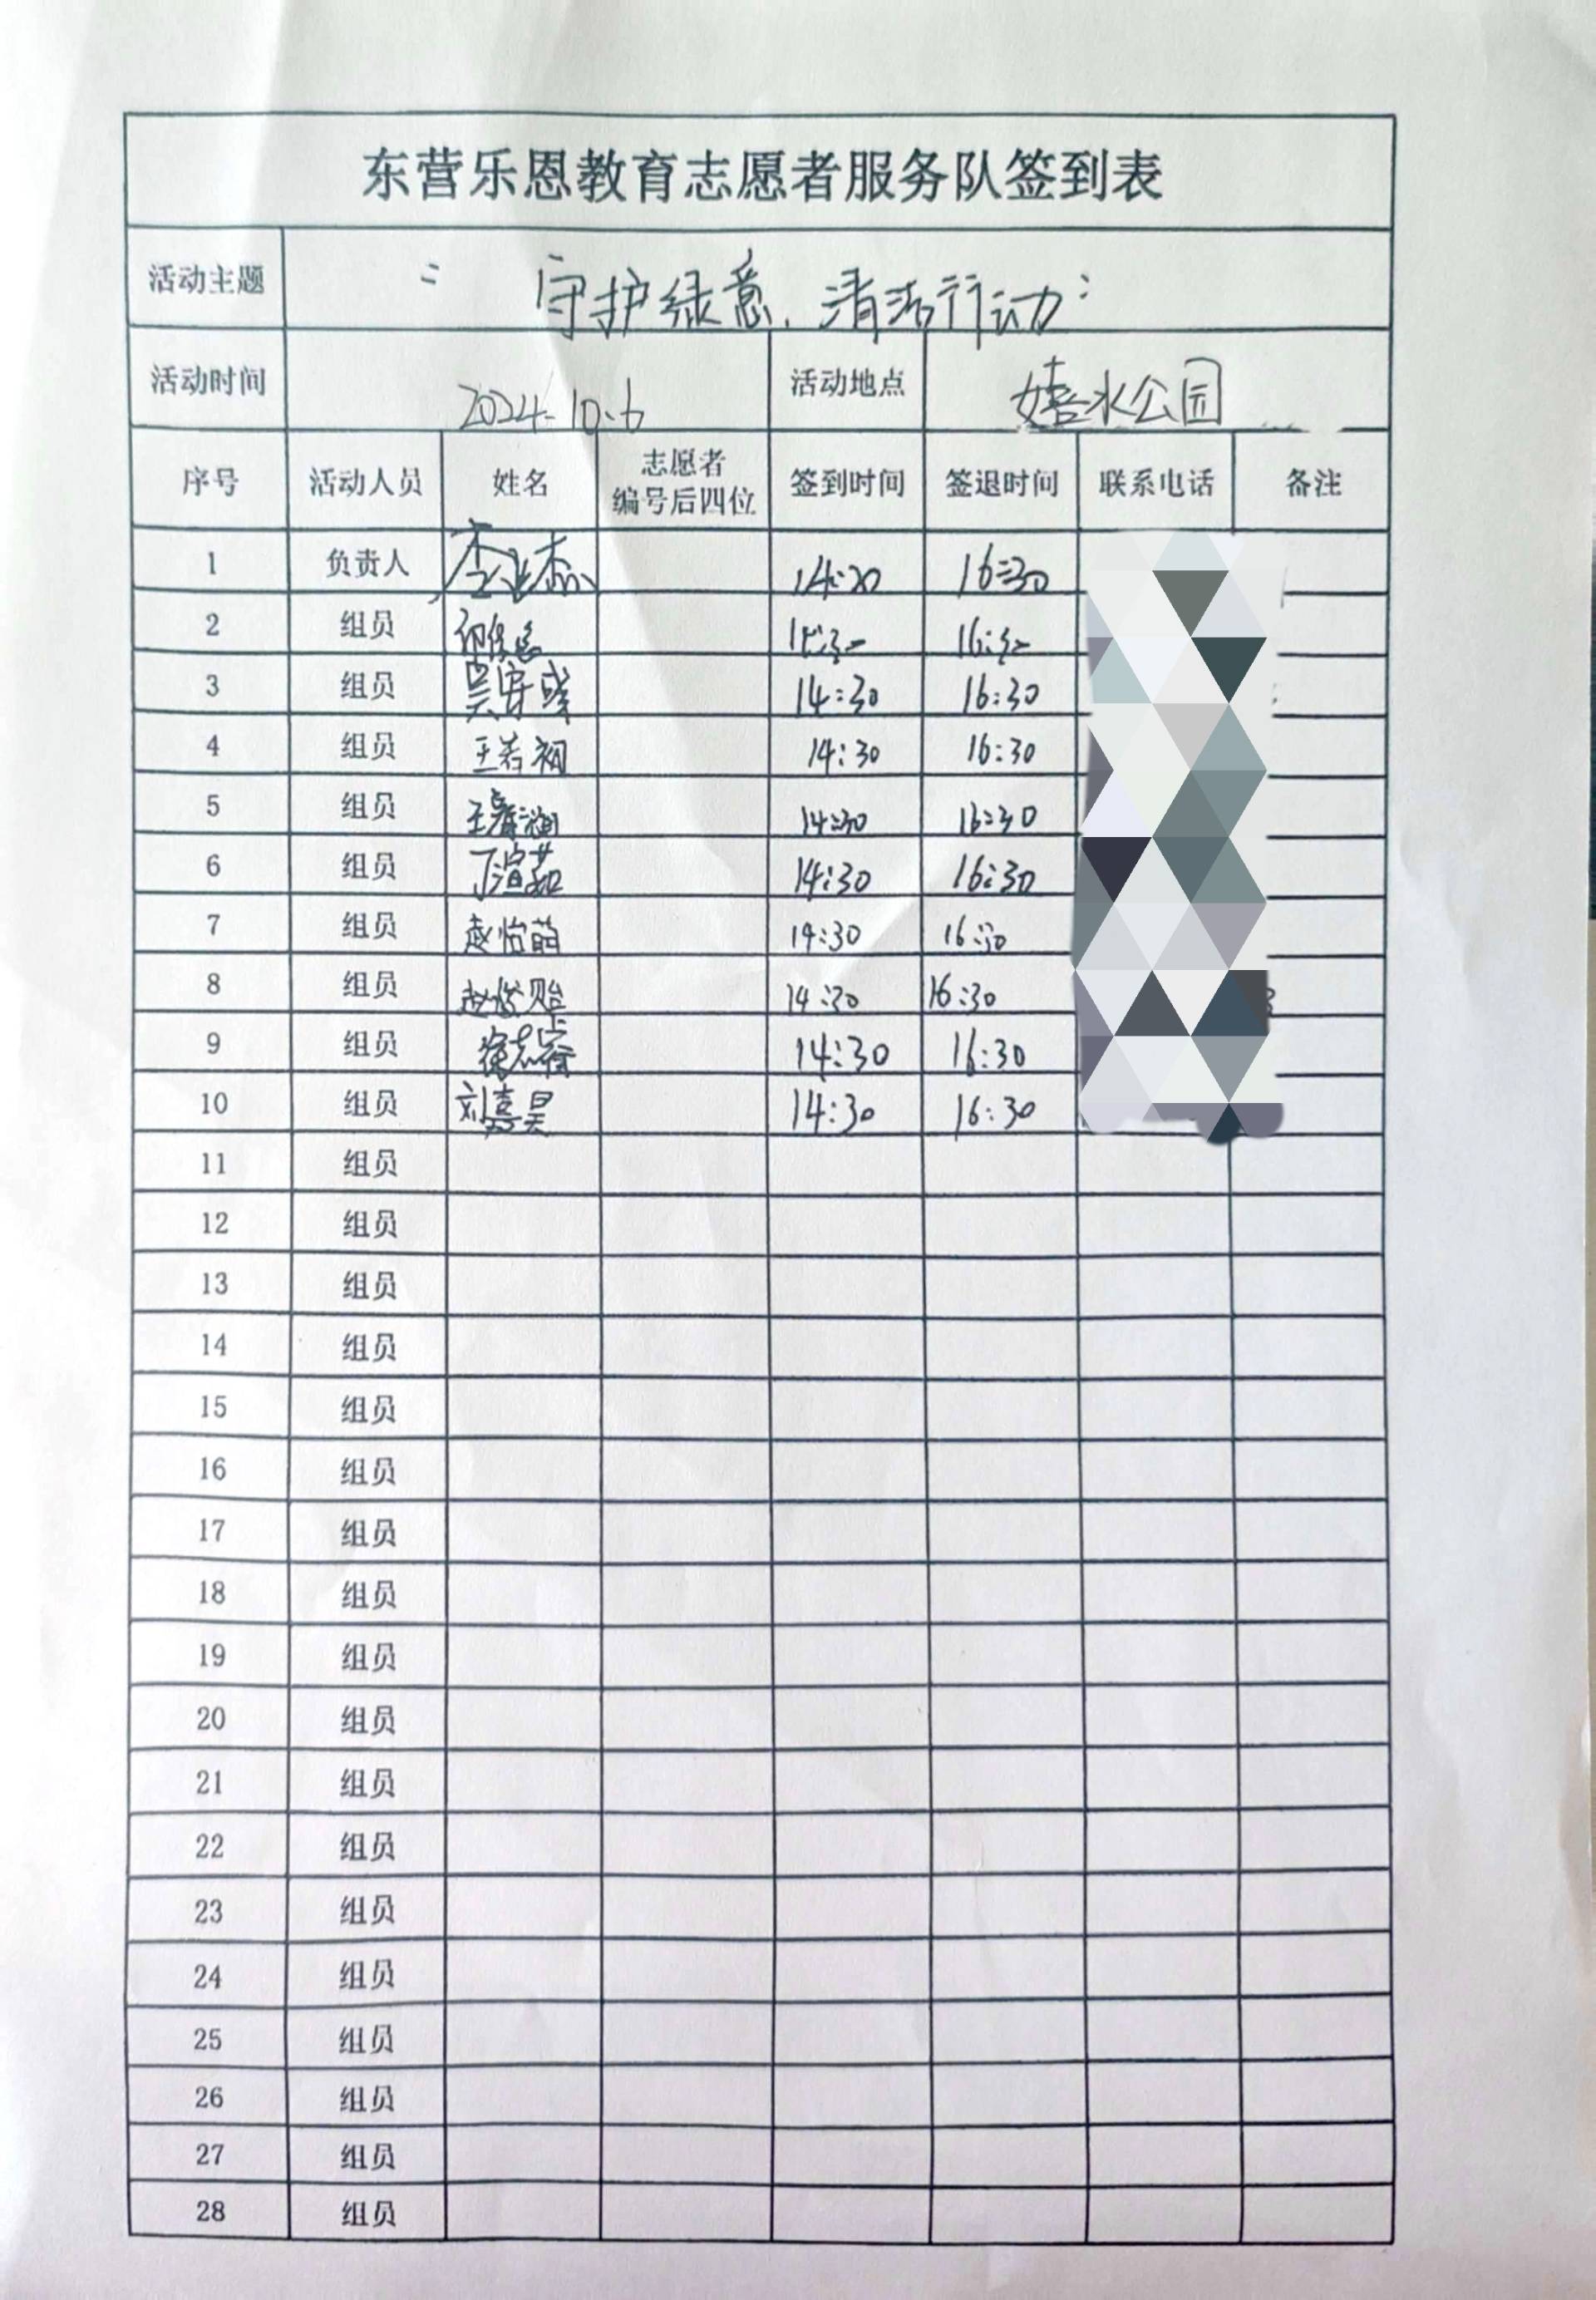 东营乐恩教育志愿者服务队签到表
活动主题 “守护绿意,清洁行动”
活动时间 2024.10.6 活动地点 嬉水公园
序号 活动人员 姓名 志愿者编号后四位 签到时间 签退时间 联系电话 备注
1 负责人 14:30 16:30
2 组员 14:30 16:30
3 组员 14:30 16:30
4 组员 王若初 14:30 16:30
5 组员 14:30 16:30
6 组员 丁渲茹 14:30 16:30
7 组员 赵怡萌 14:30 16:30
8 组员 赵悦贻 14:30 16:30
9 组员 徐志睿 14:30 16:30
10 组员 刘嘉昊 14:30 16:30
11 组员
12 组员
13 组员
14 组员
15 组员
16 组员
17 组员
18 组员
19 组员
20 组员
21 组员
22 组员
23 组员
24 组员
25 组员
26 组员
27 组员
28 组员